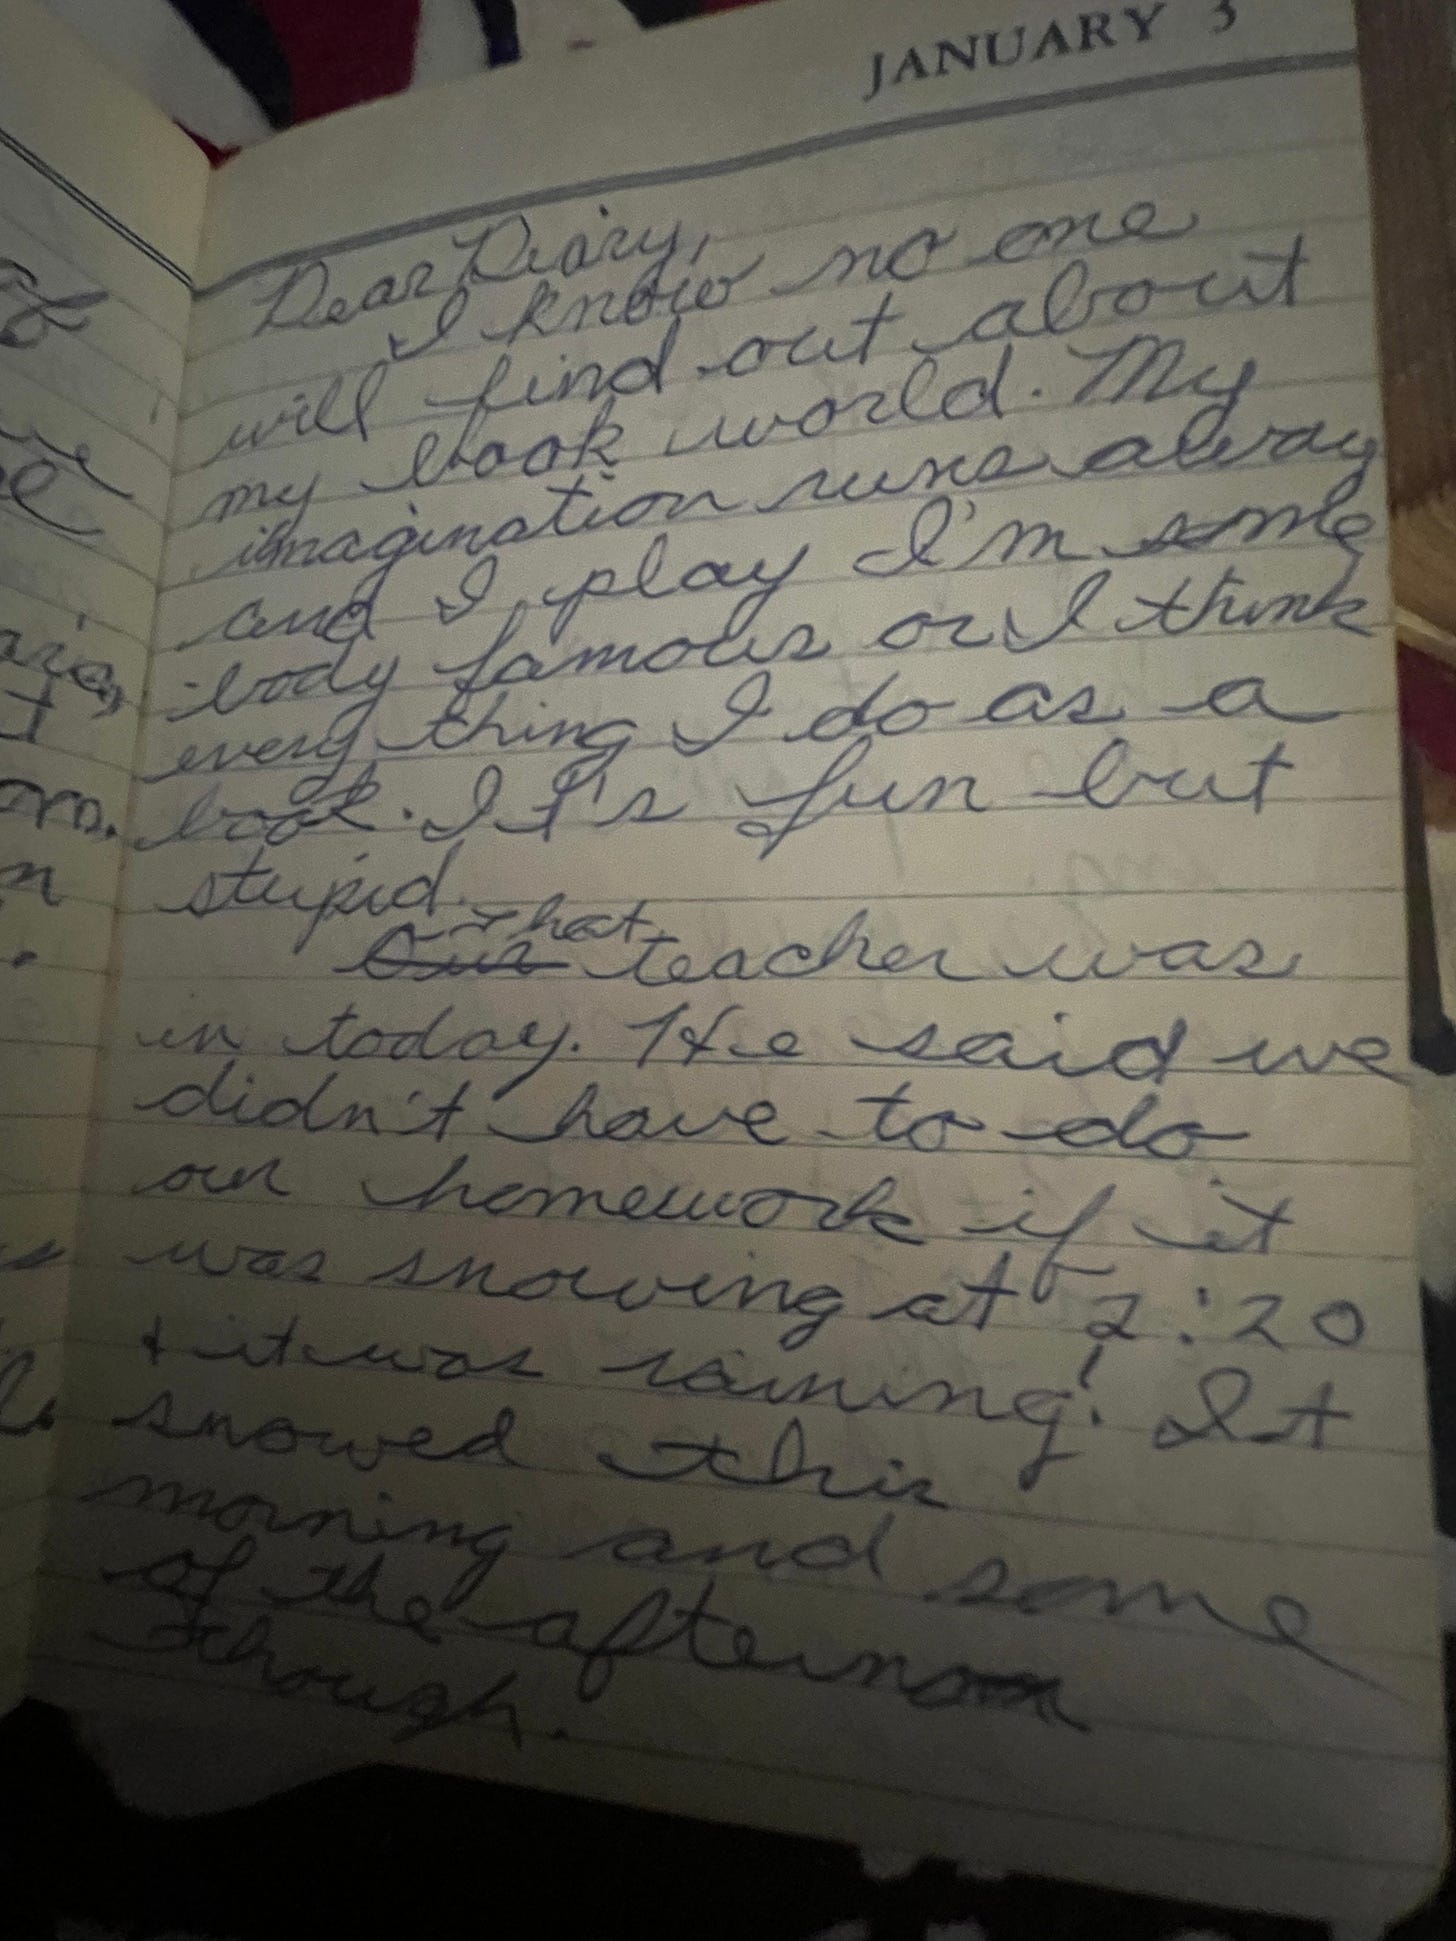 JANUARY 3
Dear Diary,
I know no one
will find out about
my book world. My
imagination runs away
and I play I'm some
body famous or I think
every thing I do as a
book. It's fun but
stupid.
that
Our teacher was
in today. He said we
didn't have to do
our homework if it
was snowing at 2:20
+ it was raining! It
snowed this
morning and some
of the afternoon
though.